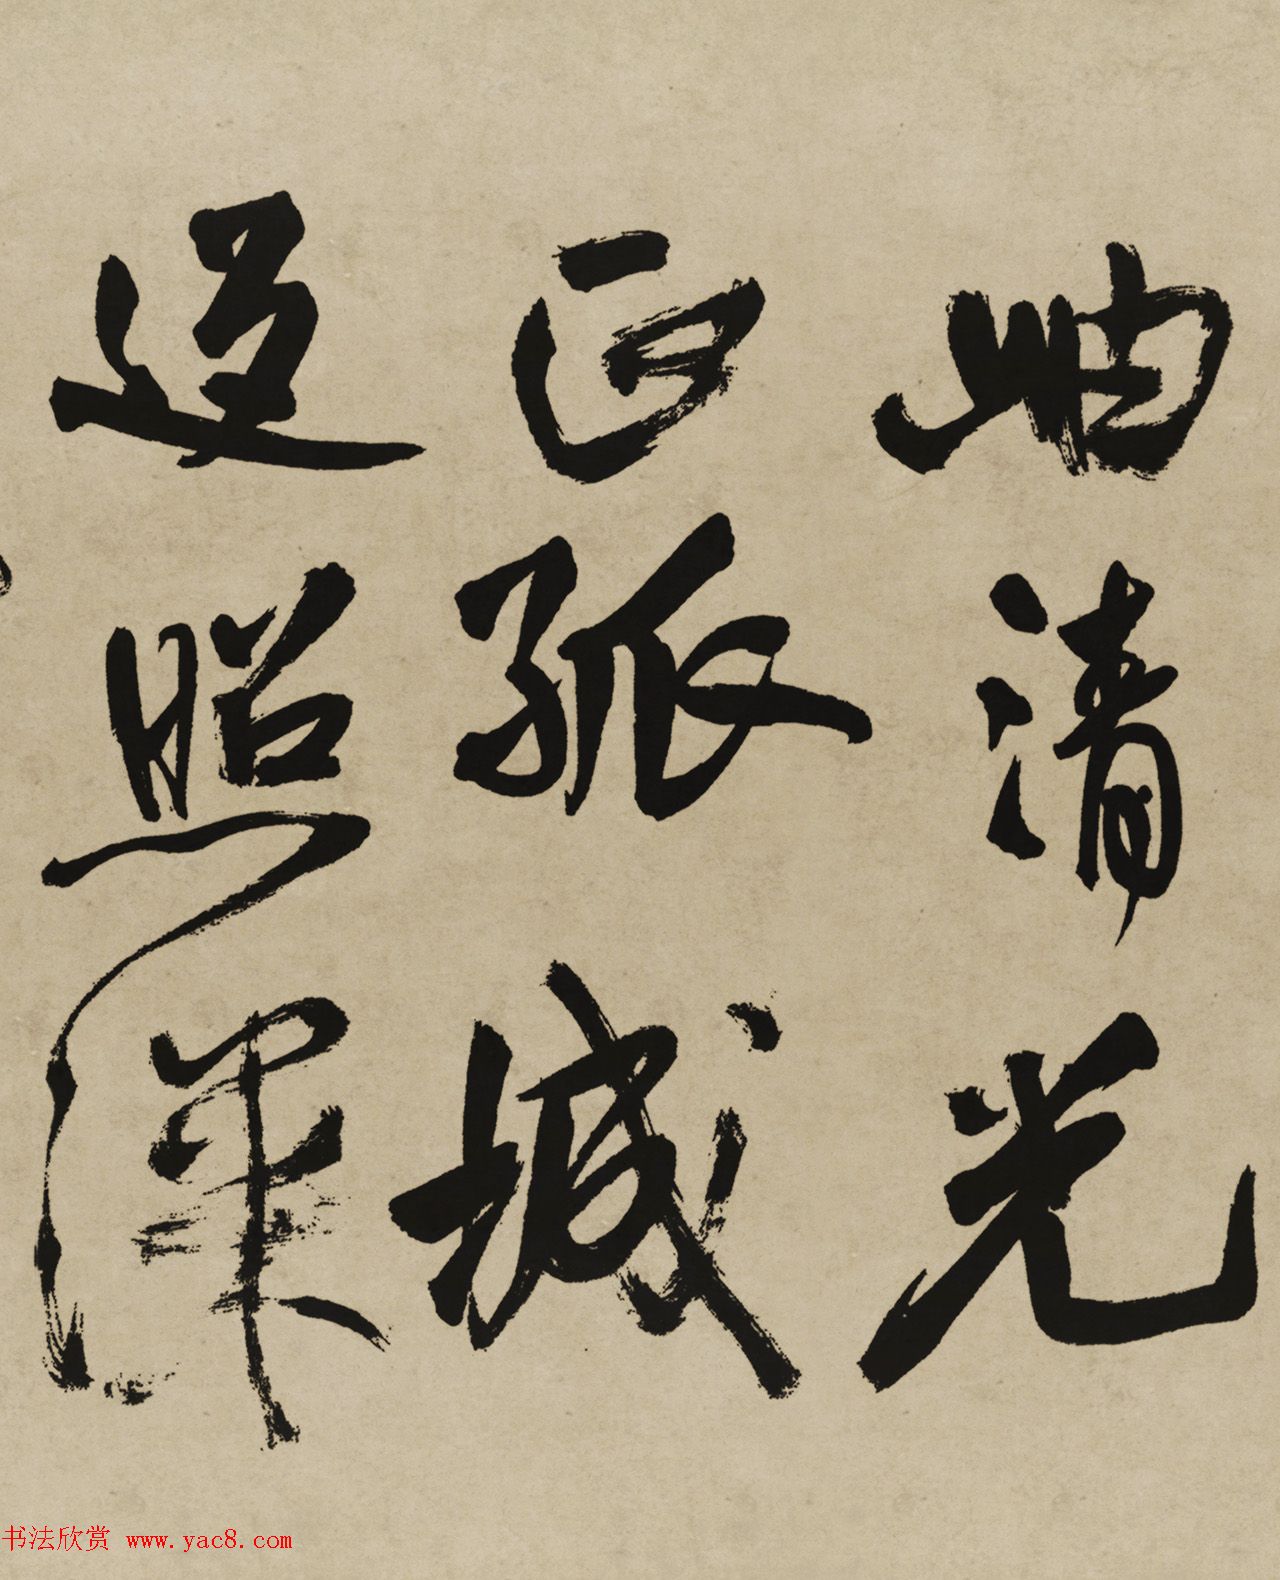 岫清光
孤城
返照
书法欣赏 www.yac8.com